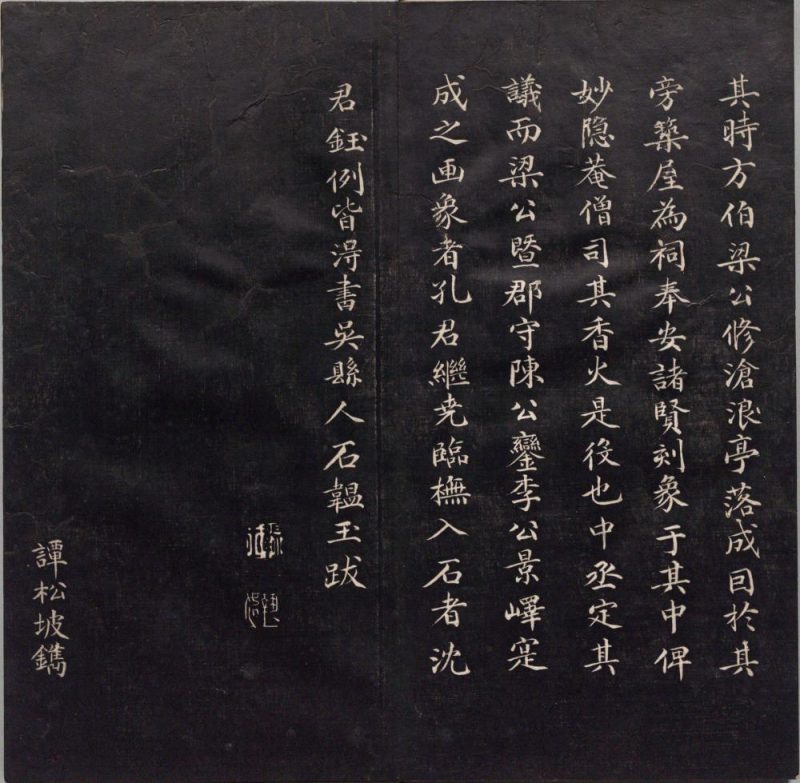 其時方伯梁公修滄浪亭落成囙於其
旁築屋為祠奉安諸賢刻象于其中俾
妙隱菴僧司其香火是役也中丞定其
議而梁公暨郡守陳公鑾李公景嶧寔
成之画象者孔君繼尭臨橅入石者沈
君鈺例皆淂書吳縣人石韞玉跋
譚松坡鐫